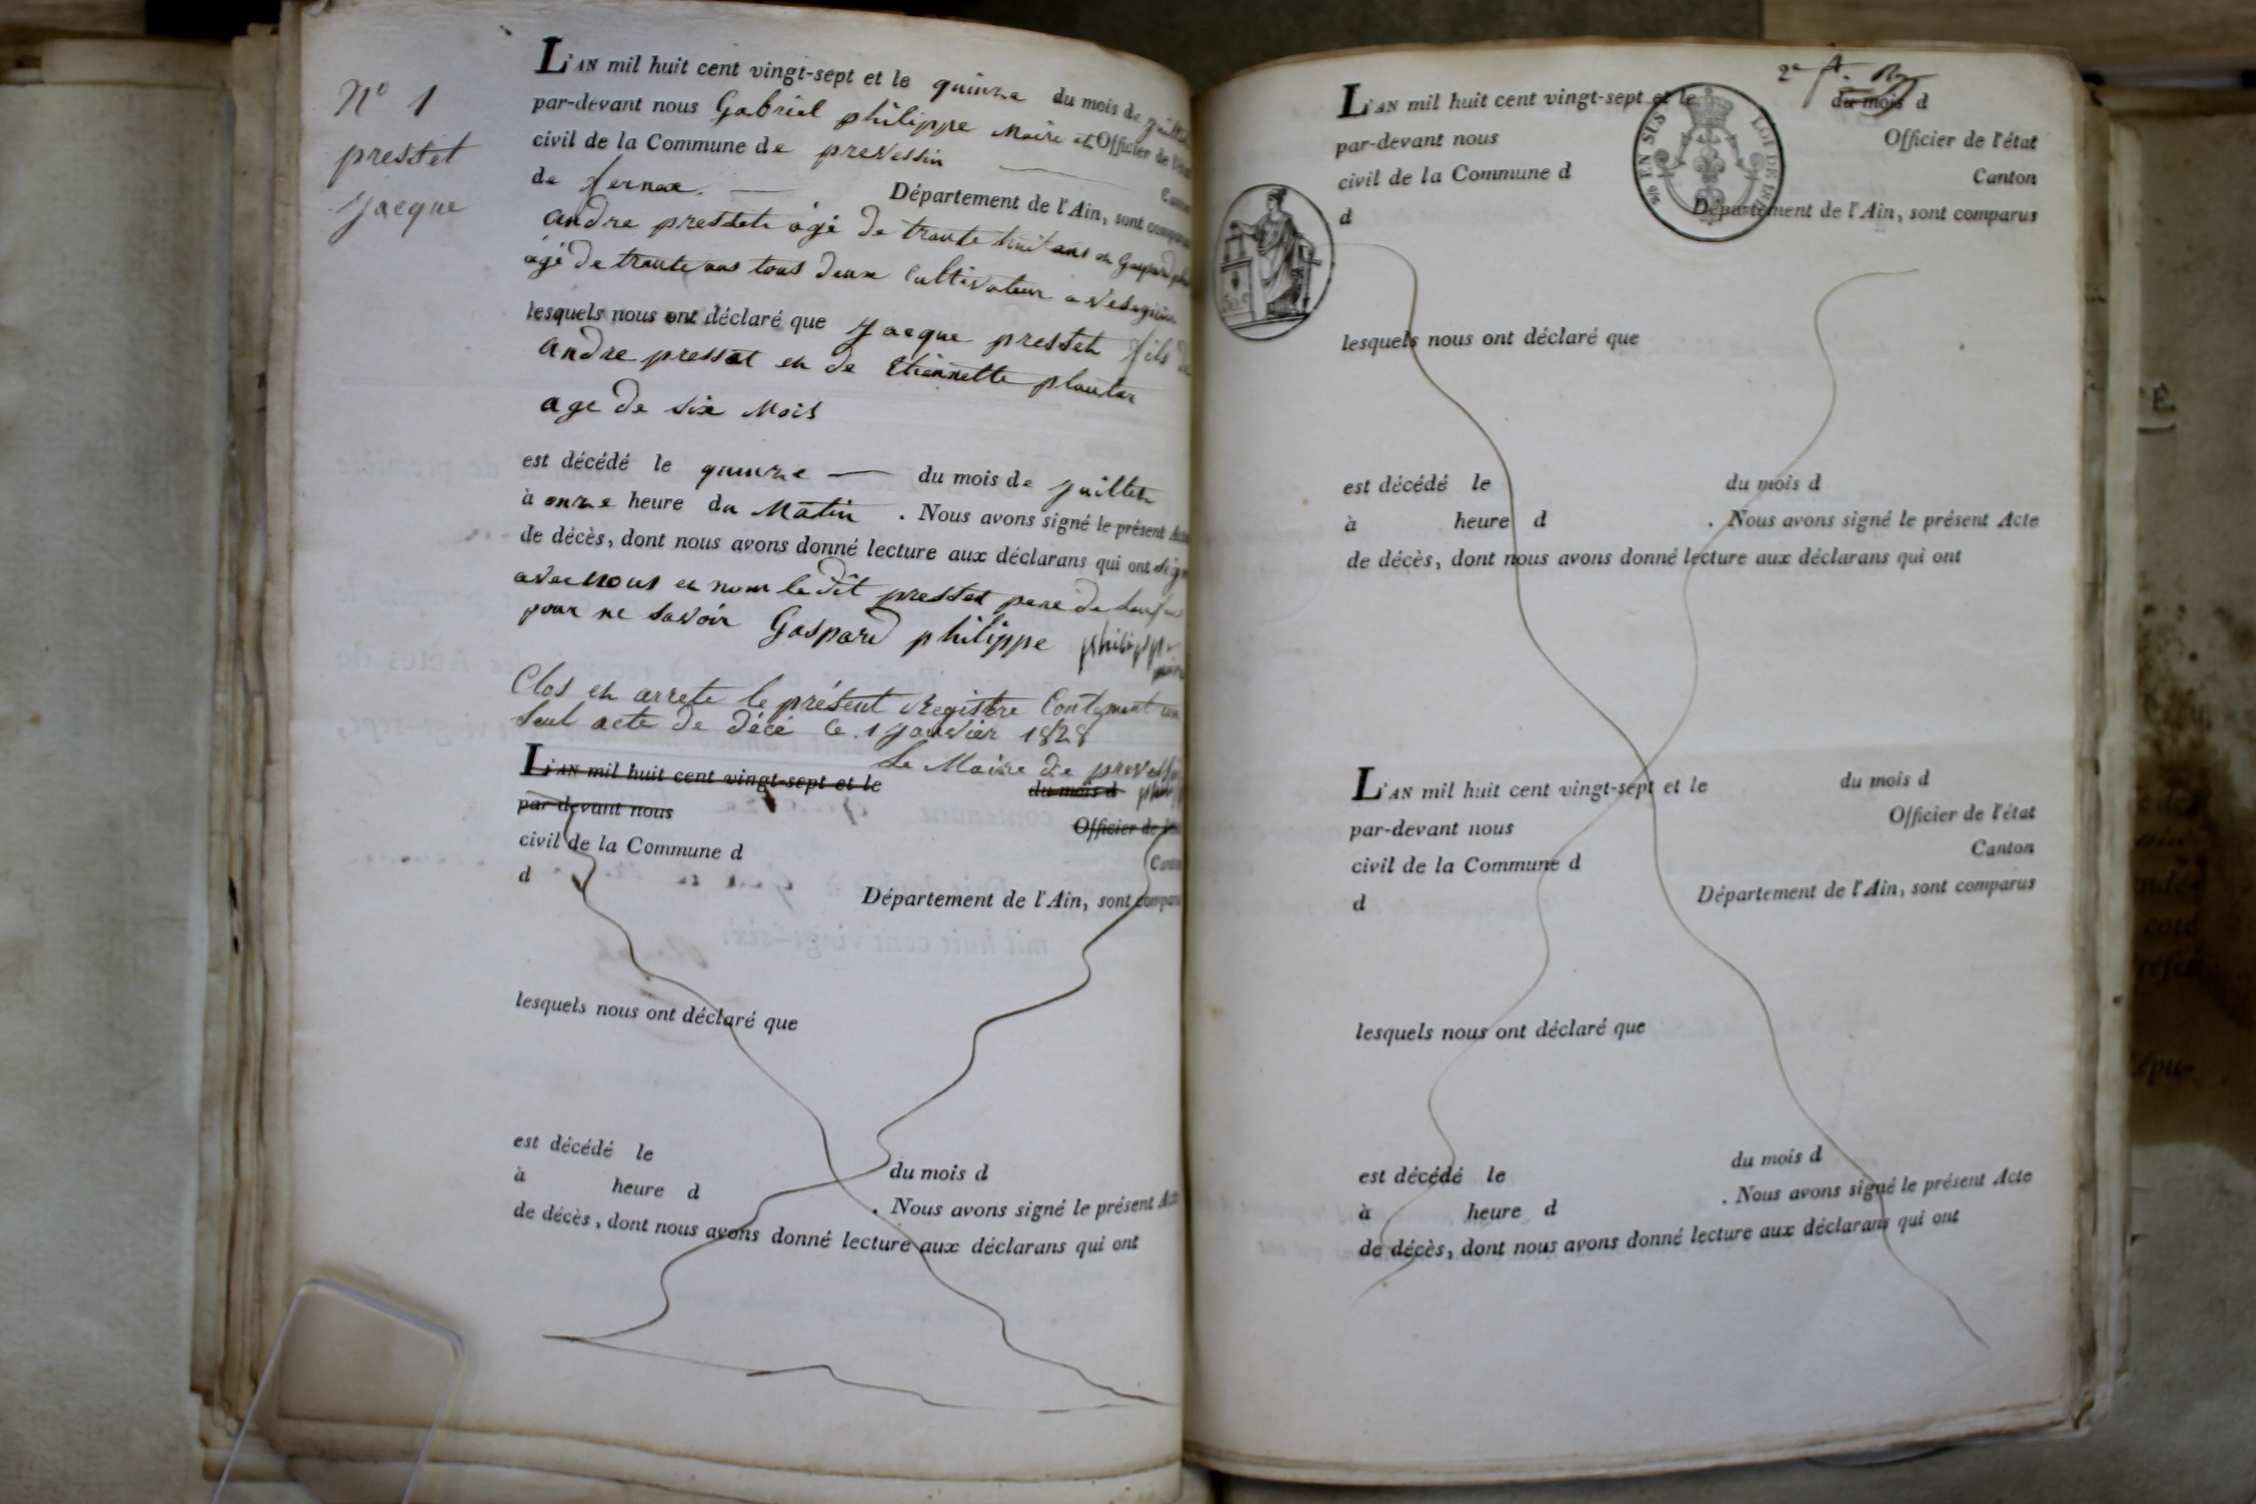 N° 1
presset
Jacque
L'AN mil huit cent vingt-sept et le quinze du mois de juillet
par-devant nous Gabriel philippe Maire et Officier de l'état
civil de la Commune de prevessin
de fernex. Département de l'Ain, sont comparus
andre presset agé de trante huit ans et Gaspard
agé de trante ans tous deux Cultivateur a
lesquels nous ont déclaré que Jacque presset fils de
andre presset et de Etiennette plantar
age de six Mois
est décédé le quinze du mois de juillet
à onze heure du Matin . Nous avons signé le présent Acte
de décès, dont nous avons donné lecture aux déclarans qui ont signé
avec nous et non le dit presset pere de
pour ne savoir Gaspard philippe philippe
Clos et arrete le présent Registre Contenant un
seul acte de décé le 1 janvier 1828
Le Maire de prevessin
L'AN mil huit cent vingt-sept et le du mois d
par-devant nous Officier de l'état
civil de la Commune d Canton
d Département de l'Ain, sont comparus
lesquels nous ont déclaré que
est décédé le du mois d
à heure d . Nous avons signé le présent Acte
de décès, dont nous avons donné lecture aux déclarans qui ont
2e
L'AN mil huit cent vingt-sept et le du mois d
par-devant nous Officier de l'état
civil de la Commune d Canton
d Département de l'Ain, sont comparus
EN SUS LOI DE
lesquels nous ont déclaré que
est décédé le du mois d
à heure d . Nous avons signé le présent Acte
de décès, dont nous avons donné lecture aux déclarans qui ont
L'AN mil huit cent vingt-sept et le du mois d
par-devant nous Officier de l'état
civil de la Commune d Canton
d Département de l'Ain, sont comparus
lesquels nous ont déclaré que
est décédé le du mois d
à heure d . Nous avons signé le présent Acte
de décès, dont nous avons donné lecture aux déclarans qui ont